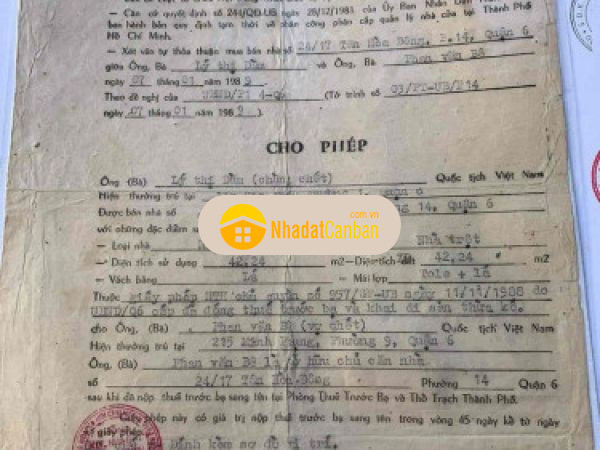 — Căn cứ quyết định số 244/QĐ-UB ngày 25/12/1983 của Ủy Ban Nhân Dân
ban hành bản quy định tạm thời về phân công phân cấp quản lý nhà cửa tại Thành Phố
Hồ Chí Minh.
— Xét văn tự thỏa thuận mua bán nhà số 24/17 Tân Hòa Đông, P.14, Quận 6
giữa Ông, Bà Lý thị Dần và Ông, Bà Phan văn Bê
ngày 07 tháng 01 năm 1989
Theo đề nghị của UBND/P14-Q6 (Tờ trình số 03/PT-UB/P14
ngày 07 tháng 01 năm 1989).
CHO PHÉP
Ông (Bà) Lý thị Dần (chồng chết) Quốc tịch Việt Nam
Hiện thường trú tại
Được bán nhà số 14, quận 6
với những đặc điểm
— Loại nhà Nhà trệt
— Diện tích sử dụng 42,24 m2 — Diện tích đất 42,24 m2
— Vách bằng Lá — Mái lợp Tole + lá
Thuộc giấy phép chủ quyền số 957/GP-UB ngày 11/11/1988 do
UBND/Q6 cấp đã đóng thuế trước bạ và khai di sản thừa kế.
cho Ông, (Bà) Phan văn Bê (vợ chết) Quốc tịch Việt Nam
Hiện thường trú tại 215 Minh Phụng, Phường 9, Quận 6
Ông, (Bà) Phan văn Bê là sở hữu chủ căn nhà
số 24/17 Tân Hòa Đông Phường 14 Quận 6
sau khi đã nộp thuế trước bạ sang tên tại Phòng Thuế Trước Bạ và Thổ Trạch Thành Phố.
Giấy phép này có giá trị nộp thuế trước bạ sang tên trong vòng 45 ngày kể từ ngày
giấy phép.
Đính kèm sơ đồ vị trí.
NhadatCanban
.com.vn